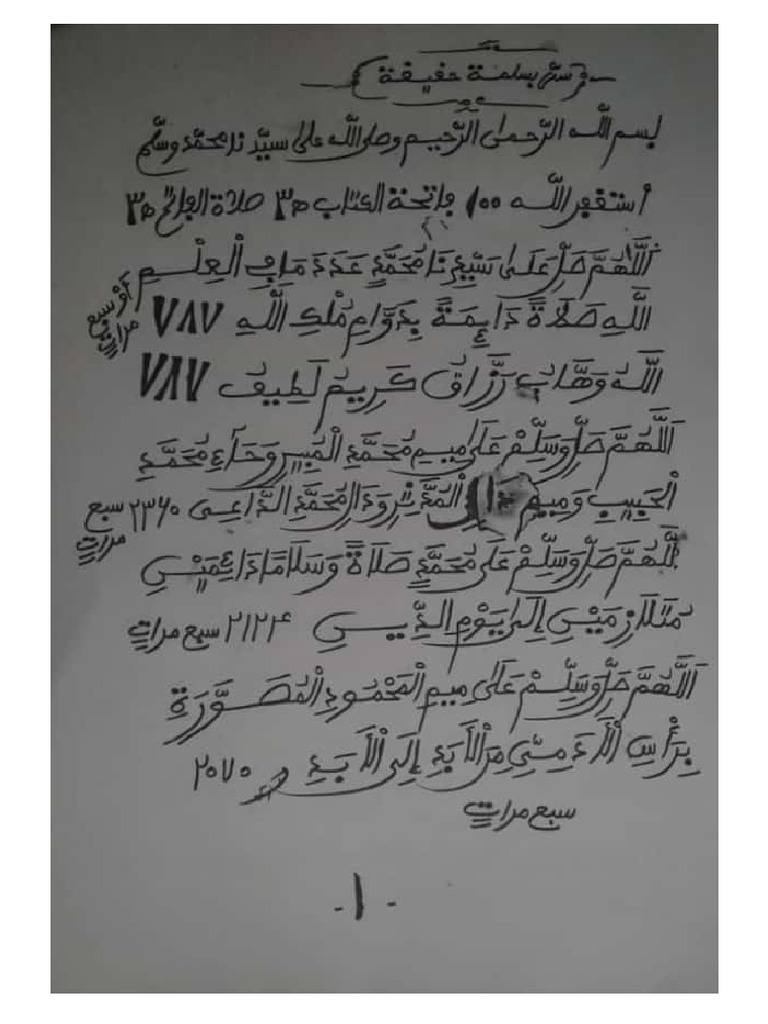 سر بسملة حفيفة
بسم الله الرحمان الرحيم وصلى الله على سيّدنا محمّد وسلّم
أستغفر الله ١٠٠ فاتحة الكتاب ٣ صلاة الفاتح ٣
اَللَّهُمَّ صَلِّ عَلَى سَيِّدِنَا مُحَمَّدٍ عَدَدَ مَا فِي الْعِلْمِ
اللَّهِ صَلَاةً دَايِمَةً بِدَوَامِ مُلْكِ اللَّهِ ٧٨٧ أو سبع مرات
اَللَّهُ وَهَّابٌ رَزَّاقٌ كَرِيمٌ لَطِيفٌ ٧٨٧
اَللَّهُمَّ صَلِّ وَسَلِّمْ عَلَى مِيمِ مُحَمَّدِ وَحَاءِ مُحَمَّدِ
الْحَبِيبِ وَمِيمِ الْمُدَّثِّرِ وَدَالِ مُحَمَّدِ الدَّاعِي ٢٣٦٠ سبع مرات
اللَّهُمَّ صَلِّ وَسَلِّمْ عَلَى مُحَمَّدٍ صَلَاةً وَسَلَامًا دَائِمَيْنِ
مُتَلَازِمَيْنِ إِلَى يَوْمِ الدِّينِ ٢١٢٤ سبع مرات
اَللَّهُمَّ صَلِّ وَسَلِّمْ عَلَى مِيمِ الْمَحْمُودِ الْمُصَوَّرَةِ
بِرَأْسِ الْأَدَمِيِّ مِنَ الْأَبَدِ إِلَى الْأَبَدِ ٢٠٧٠
سبع مرات
-١-